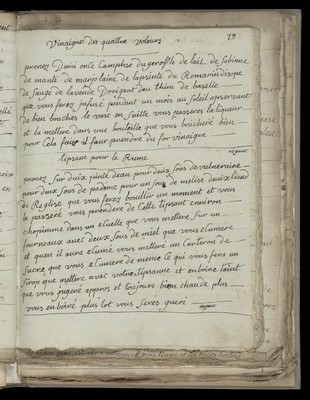 79
Vinaigre des quattre voleurs
prenez Demi once Camphre du gerofle de lait de sabinne
de mante de marjolaine de lapsinte du Romarin disope
de sauge de lavende Dorigent deu thim de baselic
que vous ferez infusé pendent un mois au soleil opservant
de bien boucher le vase en suitte vous passeres la liqueur
et la mettere dans une bouteille que vous boucheré bien
pour Cela faire il faut prendre du for vinaigre
Tipsant pour le Rume
prenez sur deux pinte deau pour deux sous de vulneraire
pour deux sous de padone pour un sous de melise deux
de Reglise que vous ferez bouillir un moment et vous
le passeré vous prendere de Cette tipsant environ
chopinnne dans un ecuelle que vous mettere sur un
fourneaux avec deux sous de miel que vous elumere
et quen il aura elumé vous metteré un Carteron de
sucre que vous elumere de meme Ce qui vous fera un
sirop que mettere avec votre tipsanne et en boire taint
que vous jugeré appros et toujours bien chaude plus
vous en boiré plus tot vous serés gueri